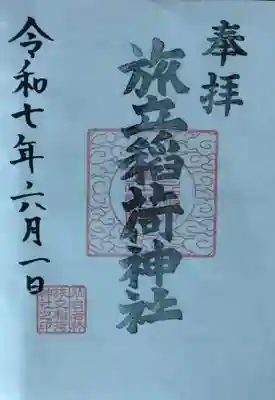 奉拝
旅立稲荷神社
令和七年六月一日